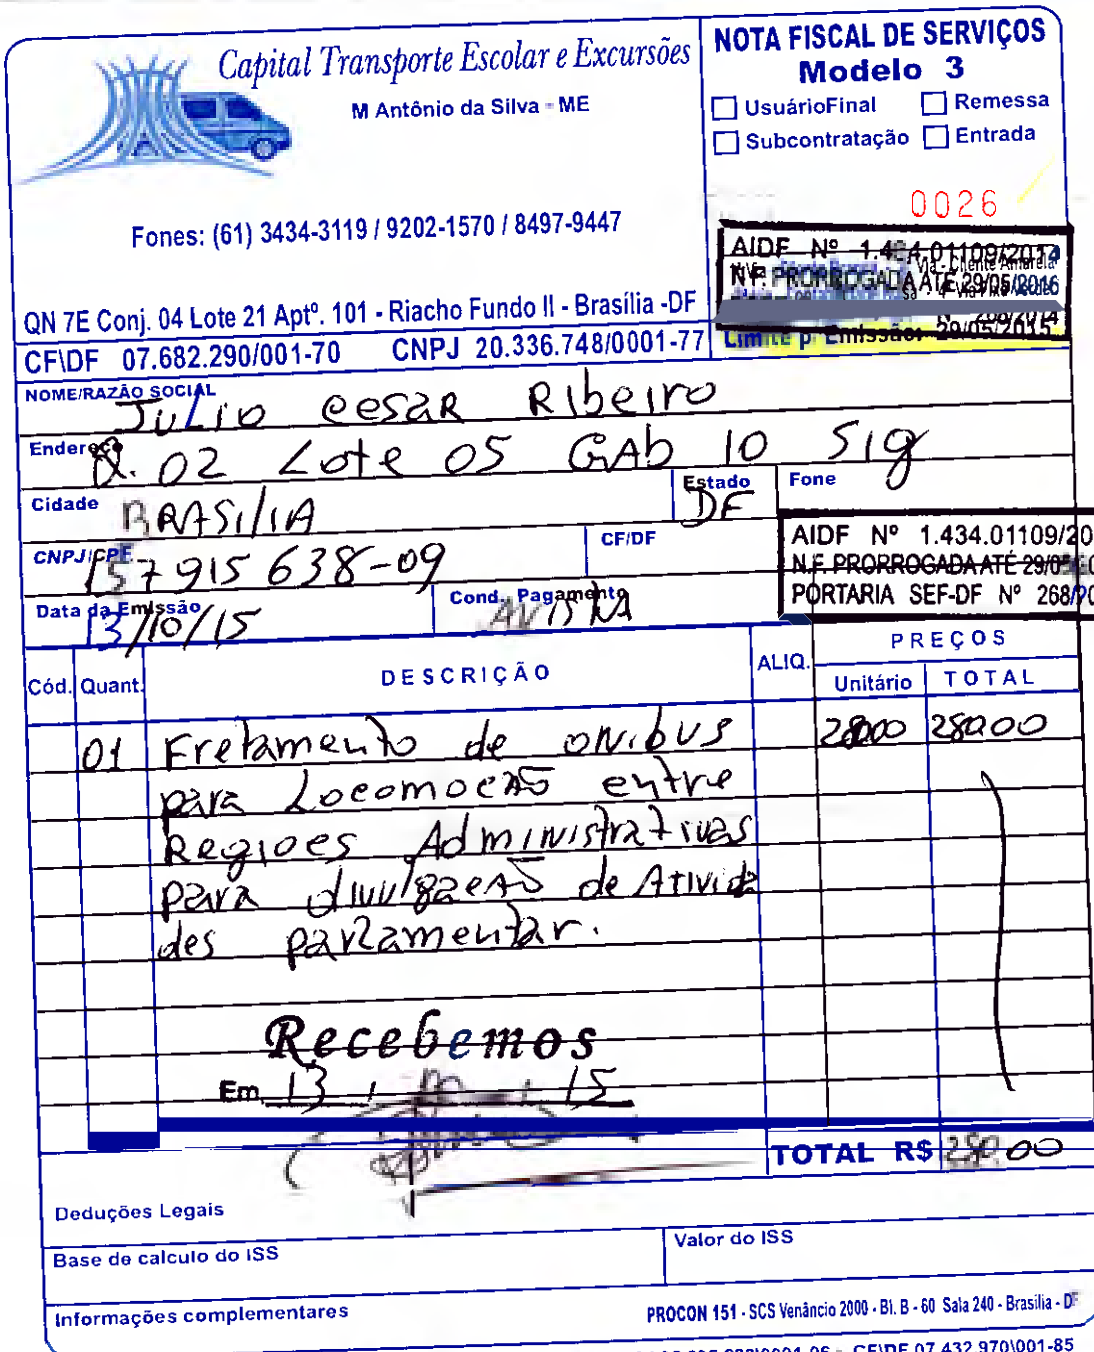 Capital Transporte Escolar e Excursões
M Antônio da Silva - ME
Fones: (61) 3434-3119 / 9202-1570 / 8497-9447
QN 7E Conj. 04 Lote 21 Aptº. 101 - Riacho Fundo II - Brasília -DF
CF\DF 07.682.290/001-70 CNPJ 20.336.748/0001-77
NOTA FISCAL DE SERVIÇOS
Modelo 3
UsuárioFinal Remessa
Subcontratação Entrada
0026
AIDF Nº 01109/2014
N.F. PRORROGADA ATÉ 29/05/2016
268/2014
Limite p/ Emissão: 29/05/2015
NOME/RAZÃO SOCIAL JuLio cesaR Ribeiro
Endereço Q. 02 Lote 05 GAb 10 Sig
Cidade BRASiliA Estado DF Fone
CNPJ/CPF 157 915 638-09 CF/DF
AIDF Nº 1.434.01109/20
N.F. PRORROGADA ATÉ 29/05
PORTARIA SEF-DF Nº 268/20
Data da Emissão 13/10/15 Cond. Pagamento AViStA
Cód. Quant. DESCRIÇÃO ALIQ. PREÇOS
Unitário TOTAL
01 Fretamento de oNibus 28000 28000
para Locomocão entre
Regioes Administrativas
para divulgacão de Ativida
des parlamentar.
Recebemos
Em 13 / 10 / 15
TOTAL R$ 280.00
Deduções Legais
Base de calculo do ISS Valor do ISS
Informações complementares PROCON 151 - SCS Venâncio 2000 - Bl. B - 60 Sala 240 - Brasilia - DF
CF\DF 07.432.970\001-85